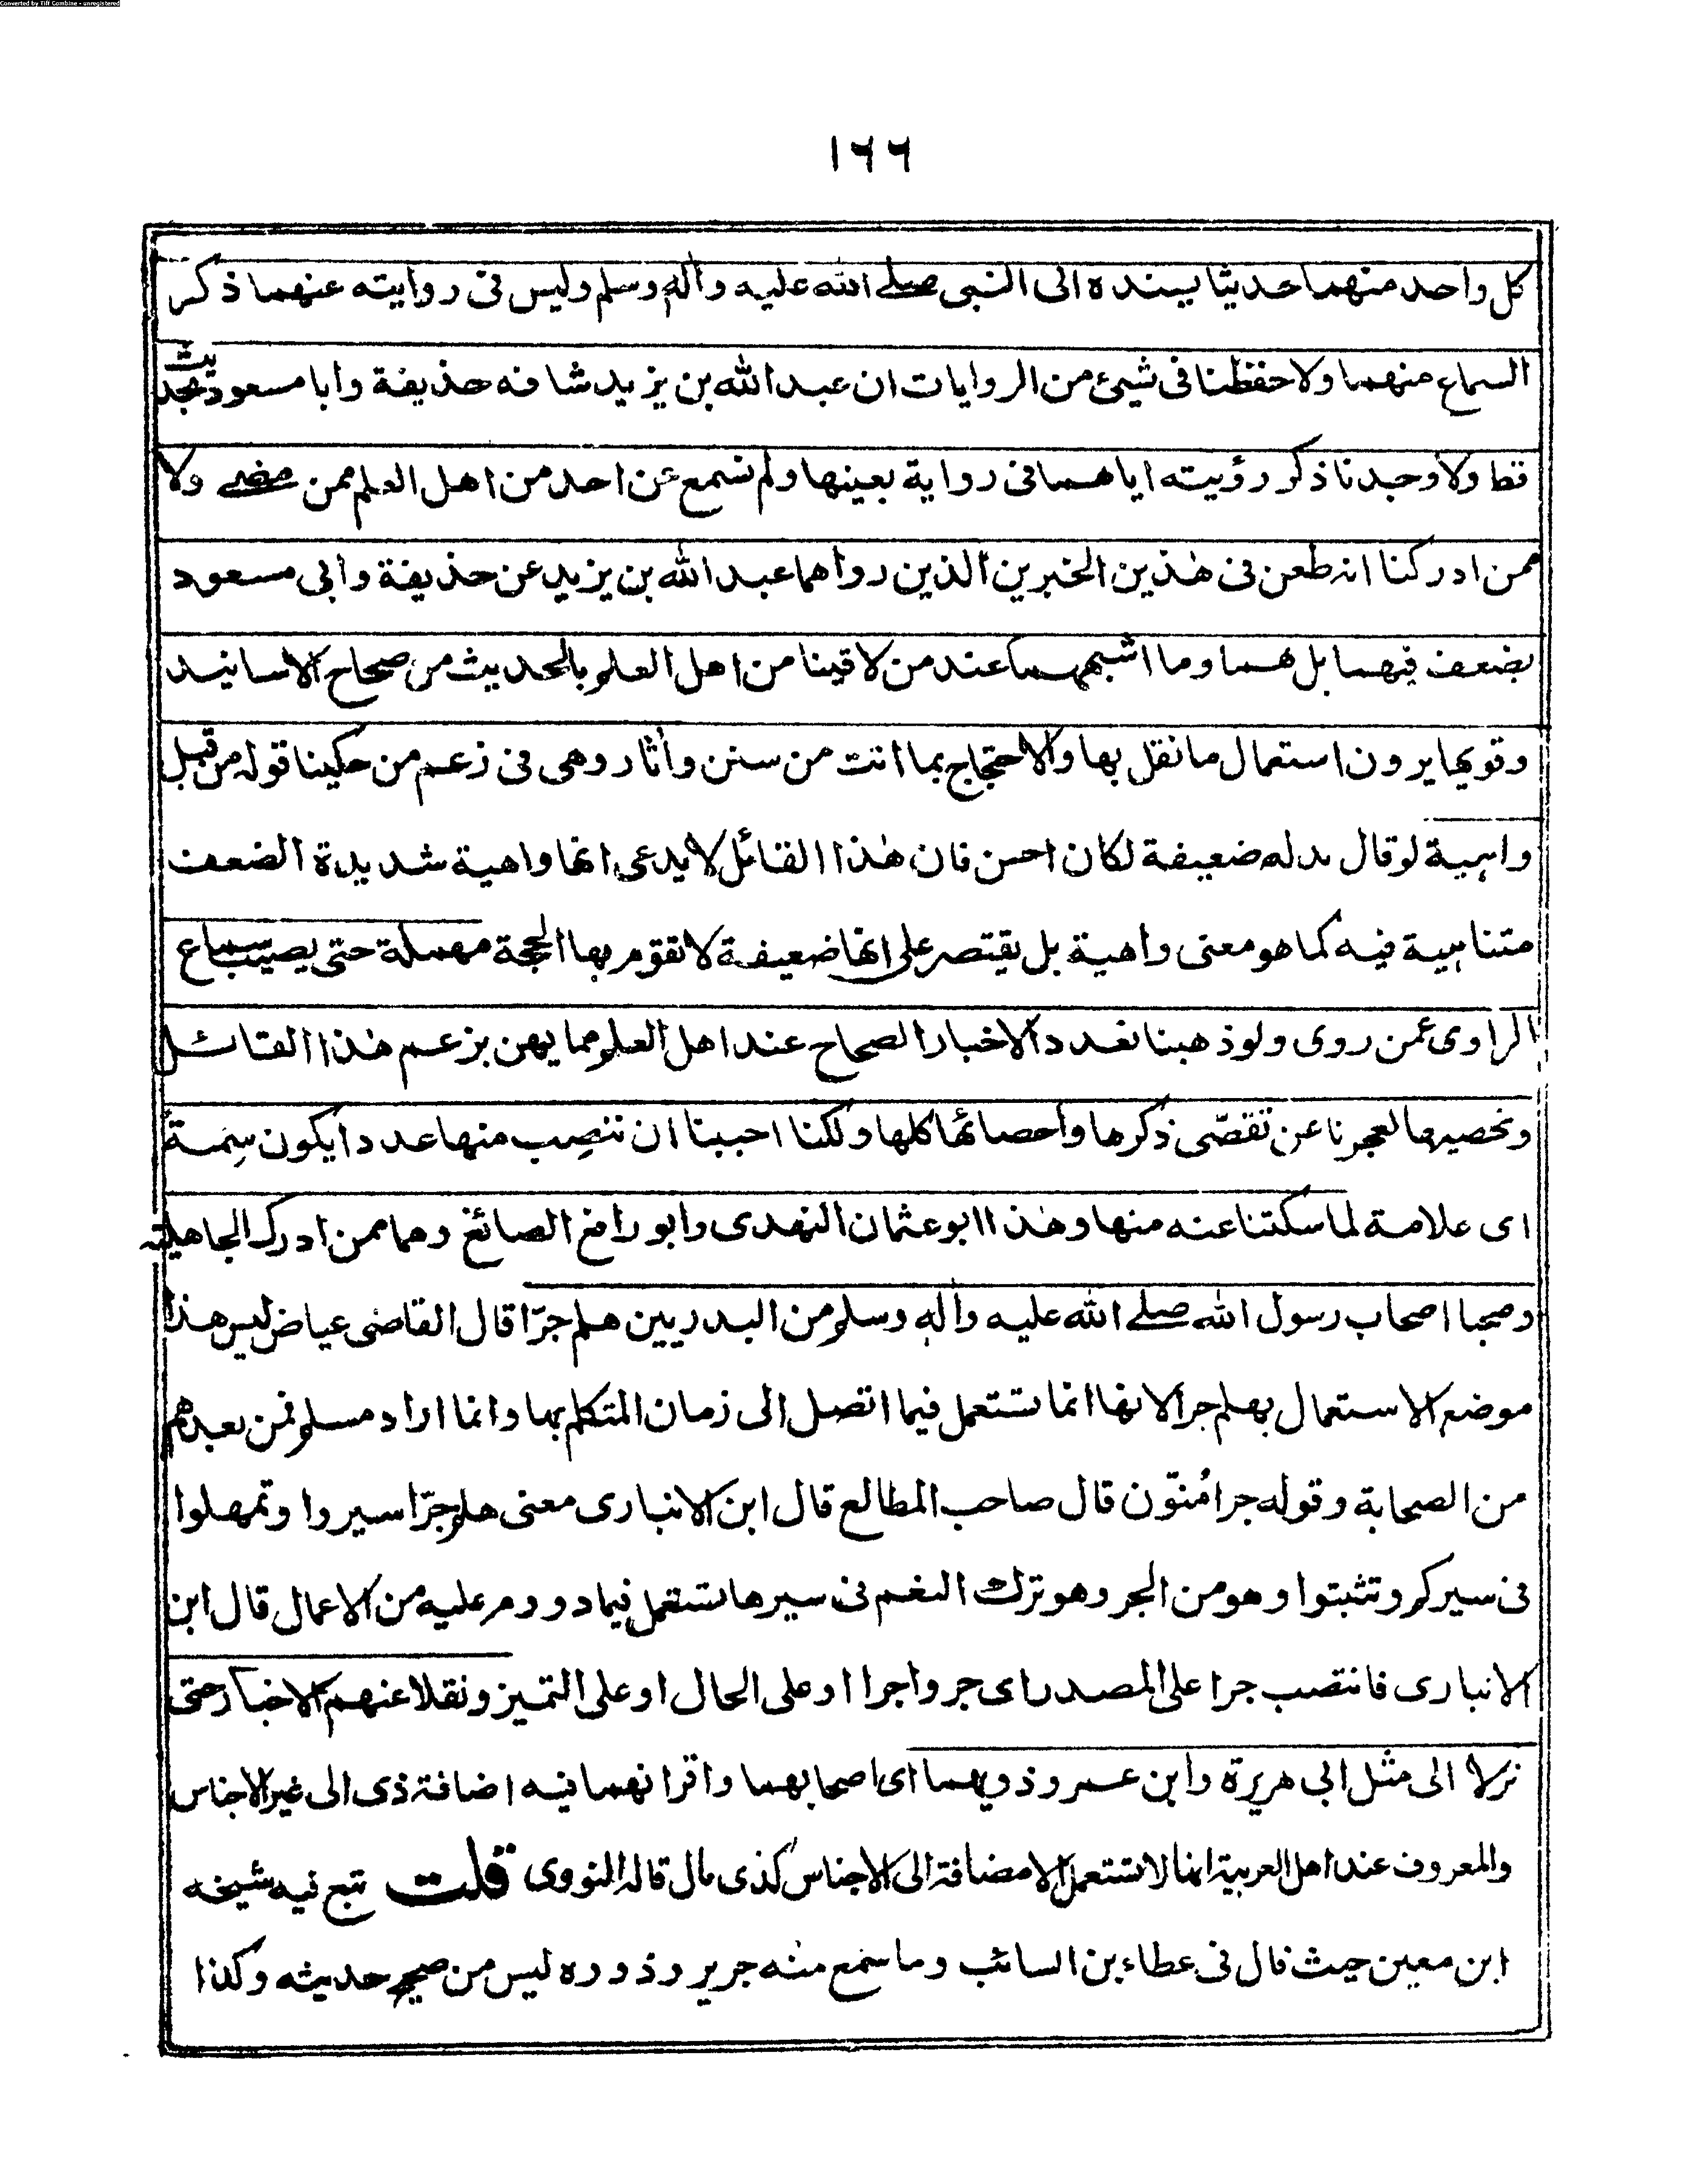 Converted by Tiff Combine - unregistered
١٦٦
كل واحد منهما حديثا يسنده الى النبى صلے الله عليه واٰله وسلم وليس فى روايته عنهما ذكر
السماع منهما ولا حفظنا فى شيئ من الروايات ان عبد الله بن يزيد شافه حذيفة وابا مسعود بحديث
قط ولا وجدنا ذكر رؤيته اياهما فى رواية بعينها ولم نسمع عن احد من اهل العلم ممن مضے ولا
ممن ادركنا انه طعن فى هٰذين الخبرين الذين رواهما عبد الله بن يزيد عن حذيفة وابى مسعود
بضعف فيهما بل هما وما اشبههما عند من لاقينا من اهل العلم بالحديث من صحاح الاسانيد
وقويها يرون استعمال ما نقل بها والاحتجاج بما اتت من سنن واٰثار وهى فى زعم من حكينا قوله من قبل
واهية لو قال بدله ضعيفة لكان احسن فان هٰذا القائل لا يدعى انها واهية شديدة الضعف
متناهية فيه كما هو معنى واهية بل يقتصر على انها ضعيفة لا تقوم بها الحجة مهملة حتى يصيب سماع
الراوى عمن روى ولو ذهبنا نعدد الاخبار الصحاح عند اهل العلم مما يهن بزعم هٰذا القائل
ونحصيها لعجزنا عن تقصّى ذكرها واحصائها كلها ولكنا احببنا ان ننصِب منها عددا يكون سِمَةً
اى علامة لما سكتنا عنه منها وهٰذا ابو عثمان النهدى وابو رافع الصائغ وهما ممن ادرك الجاهلية
وصحبا اصحاب رسول الله صلے الله عليه واٰله وسلم من البدريين هلم جرّا قال القاضى عياض ليس هذا
موضع الاستعمال بهلم جرا لانها انما تستعمل فيما اتصل الى زمان المتكلم بها وانما اراد مسلم فمن بعدهم
من الصحابة وقوله جرا مُنوّن قال صاحب المطالع قال ابن الانبارى معنى هلم جرّا سيروا وتمهلوا
فى سيركم وتثبتوا وهو من الجر وهو ترك النغم فى سيرها تستعمل فيما دووم عليه من الاعمال قال ابن
الانبارى فانتصب جرا على المصدر اى جروا جرا او على الحال او على التميز ونقلا عنهم الاخبار حتى
نزلا الى مثل ابى هريرة وابن عمر وذويهما اى اصحابهما واقرانهما فيه اضافة ذى الى غير الاجناس
والمعروف عند اهل العربية انها لا تستعمل الا مضافة الى الاجناس كذى مال قاله النووى قلت تبع فيه شيخه
ابن معين حيث قال فى عطاء بن السائب وما سمع منه جرير وذووه ليس من صحيح حديثه وكذا